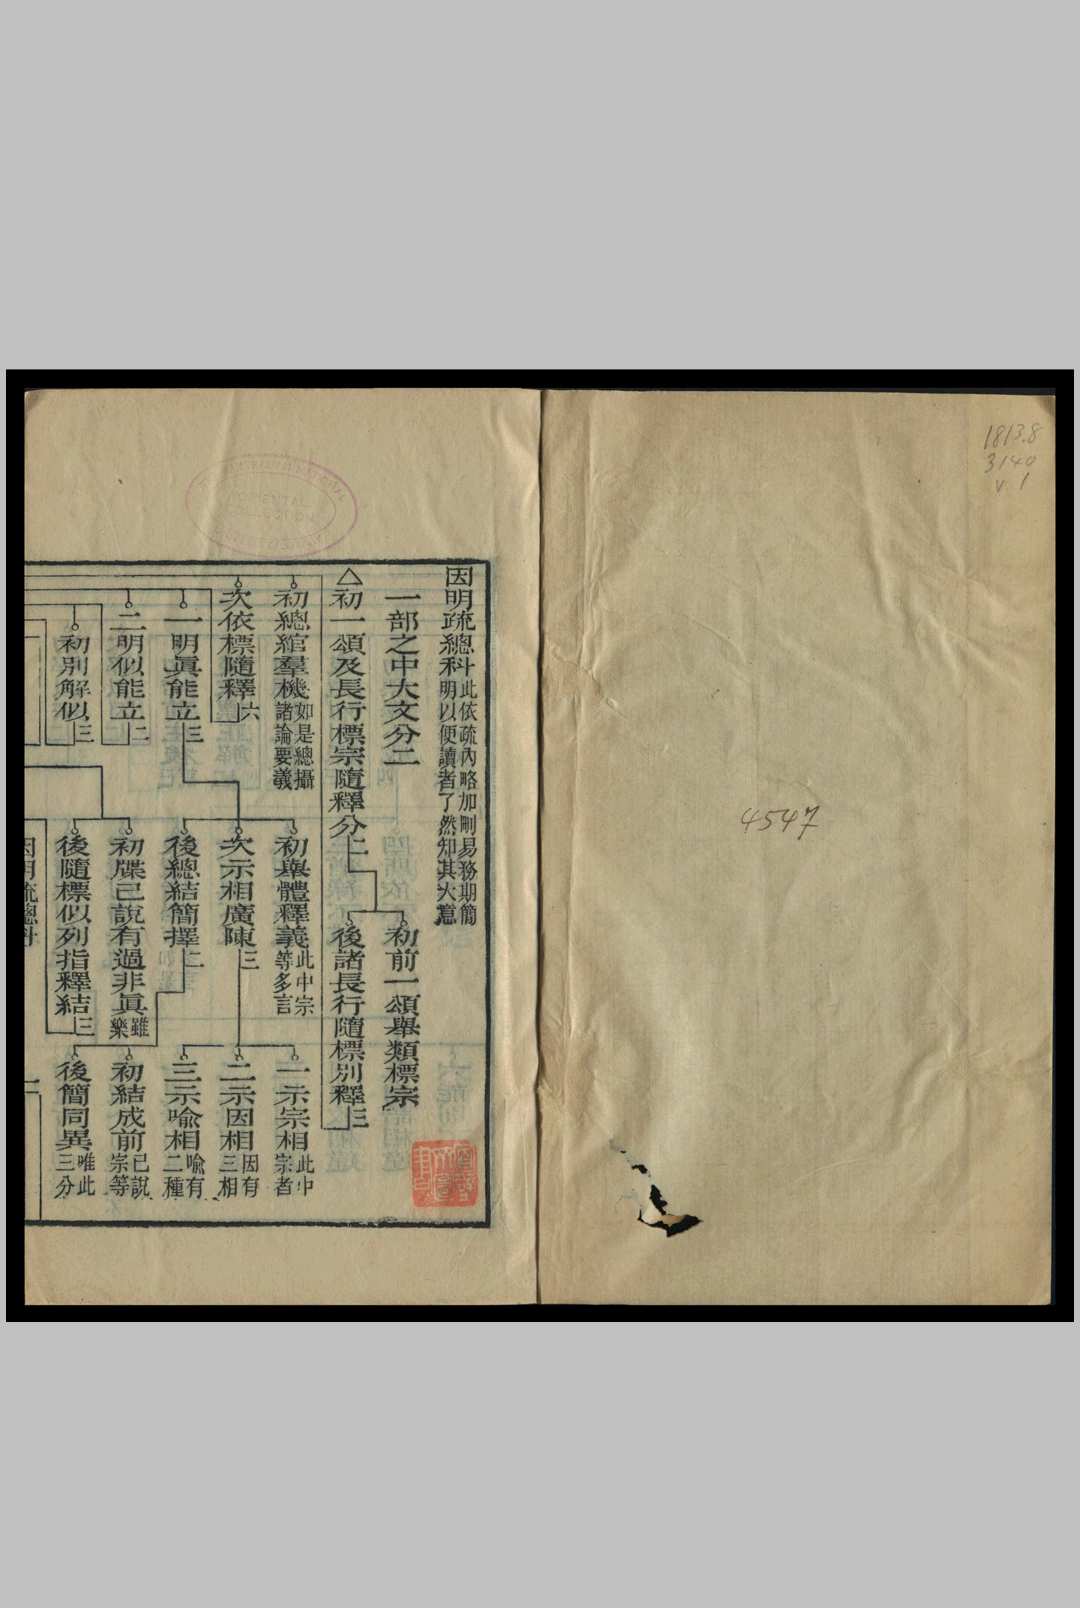 1813.8
3140
v. 1
4547
因明疏總科此依疏內略加刪易務期簡
明以便讀者了然知其大意
一部之中大文分二
初前一頌舉類標宗
△初一頌及長行標宗隨釋分二
後諸長行隨標別釋三
初總綰羣機如是總攝
諸論要義
初舉體釋義此中宗
等多言
一示宗相此中
宗者
次依標隨釋六
次示相廣陳三
二示因相因有
三相
一明眞能立三
後總結簡擇二
三示喻相喻有
二種
二明似能立二
初牒已說有過非眞雖
樂
初結成前已說
宗等
初別解似三
後隨標似列指釋結三
後簡同異唯此
三分
因明疏總科